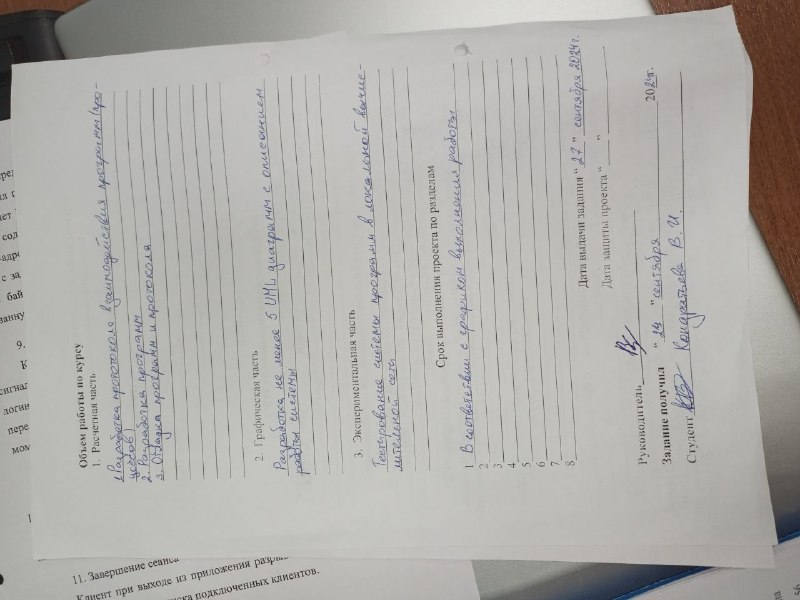 Объем работы по курсу
1. Расчетная часть
1. Разработка протокола взаимодействия программ (про-
цессов)
2. Разработка программ
3. Отладка программ и протокола
2. Графическая часть
Разработка не менее 5 UML диаграмм с описанием
работы системы
3. Экспериментальная часть
Тестирование системы программ в локальной вычис-
лительной сети
Срок выполнения проекта по разделам
1 В соответствии с графиком выполнения работы
2
3
4
5
6
7
8
Дата выдачи задания " 27 " сентября 2024г.
Дата защиты проекта " "
Руководитель
Задание получил " " сентября 2024г.
Студент Кондратьева В. И.
9.
11. Завершение сеанса
Клиент при выходе из приложения
подключенных клиентов.
56